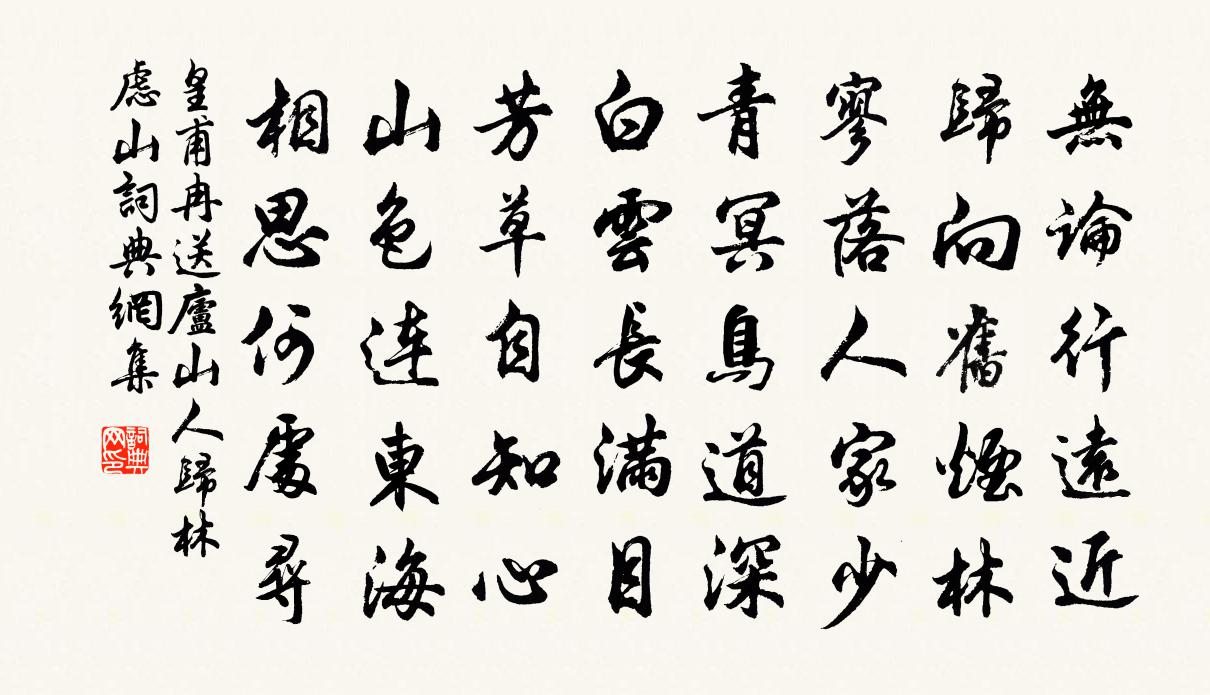 無論行遠近
歸向舊煙林
寥落人家少
青冥鳥道深
白雲長滿目
芳草自知心
山色連東海
相思何處尋
皇甫冉送廬山人歸林
慮山詞典網集
詞典
网印